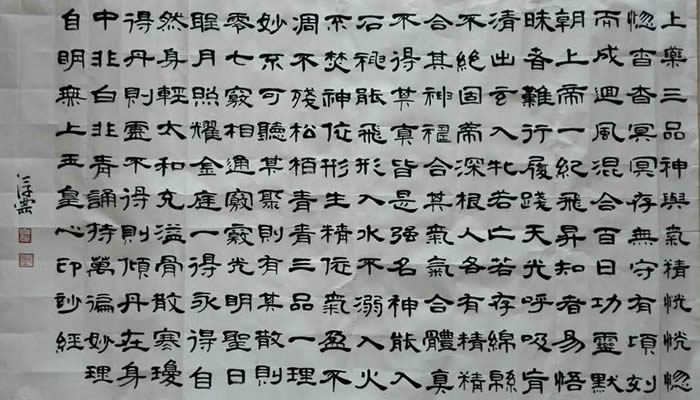 上藥三品神與氣精恍恍惚
惚杳杳冥冥存無守有頃刻
而成迴風混合百日功靈默
朝上帝一紀飛昇知者易悟
昧者難行履踐天光呼吸育
清出玄入牝若亡若存綿綿
不絕固蒂深根人各有精精
合其神神合其氣氣合體真
不得其真皆是強名神能入
石神能飛形入水不溺入火
不焚神依形生精依氣盈不
凋不殘松柏青青三品一理
妙不可聽其聚則有其散則
零七竅相通竅竅光明聖日
月照耀金庭一得永得自
然身輕太和充溢骨散寒瓊
得丹則靈不得則傾丹在身
中非白非青誦持萬遍妙理
自明無上玉皇心印妙經